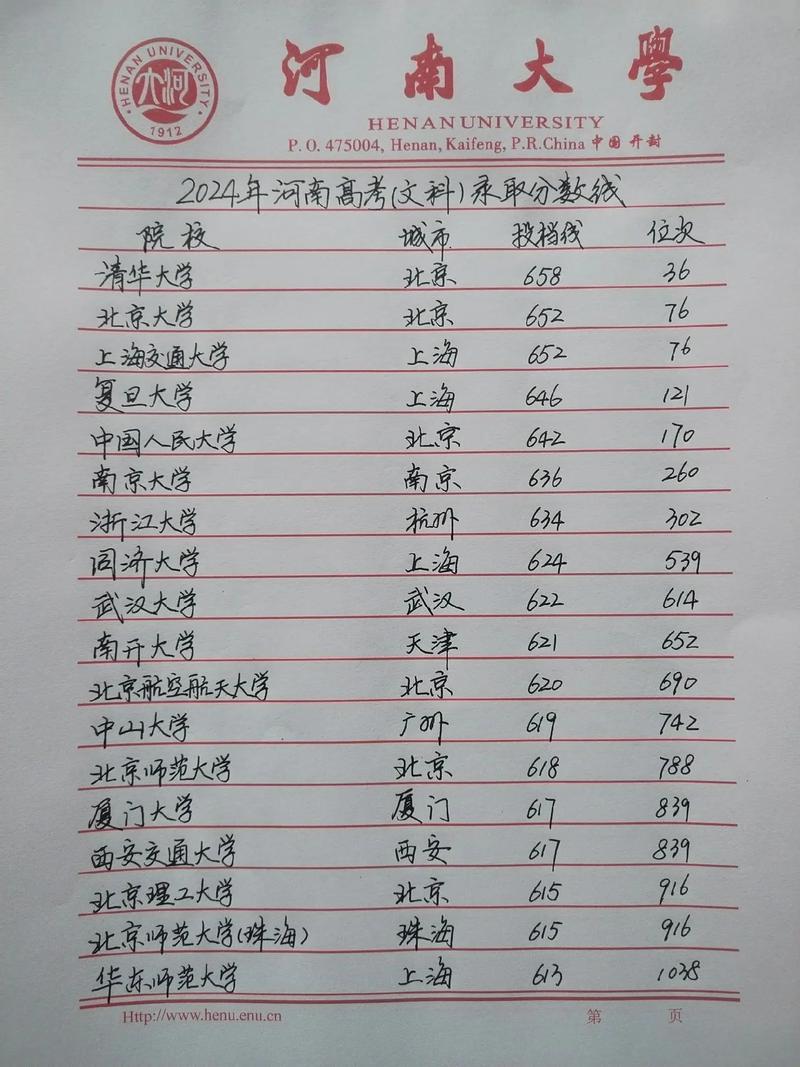 HENAN UNIVERSITY
大河
1912
河南大學
HENAN UNIVERSITY
P. O. 475004, Henan, Kaifeng, P.R.China 中国 开封
2024年河南高考(文科)录取分数线
院校 城市 投档线 位次
清华大学 北京 658 36
北京大学 北京 652 76
上海交通大学 上海 652 76
复旦大学 上海 646 121
中国人民大学 北京 642 170
南京大学 南京 636 260
浙江大学 杭州 634 302
同济大学 上海 624 539
武汉大学 武汉 622 614
南开大学 天津 621 652
北京航空航天大学 北京 620 690
中山大学 广州 619 742
北京师范大学 北京 618 788
厦门大学 厦门 617 839
西安交通大学 西安 617 839
北京理工大学 北京 615 916
北京师范大学(珠海) 珠海 615 916
华东师范大学 上海 613 1038
Http://www.henu.enu.cn 第 页